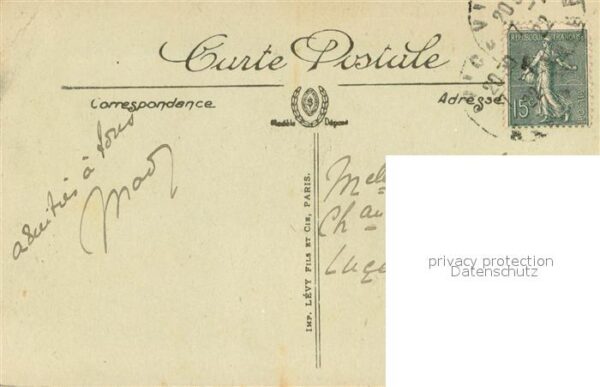 Carte Postale
Correspondance
Adresse
Modèle Déposé
REPUBLIQUE FRANÇAISE
15c
amitiés à tous
IMP. LÉVY FILS ET CIE, PARIS.
Melle
privacy protection
Datenschutz